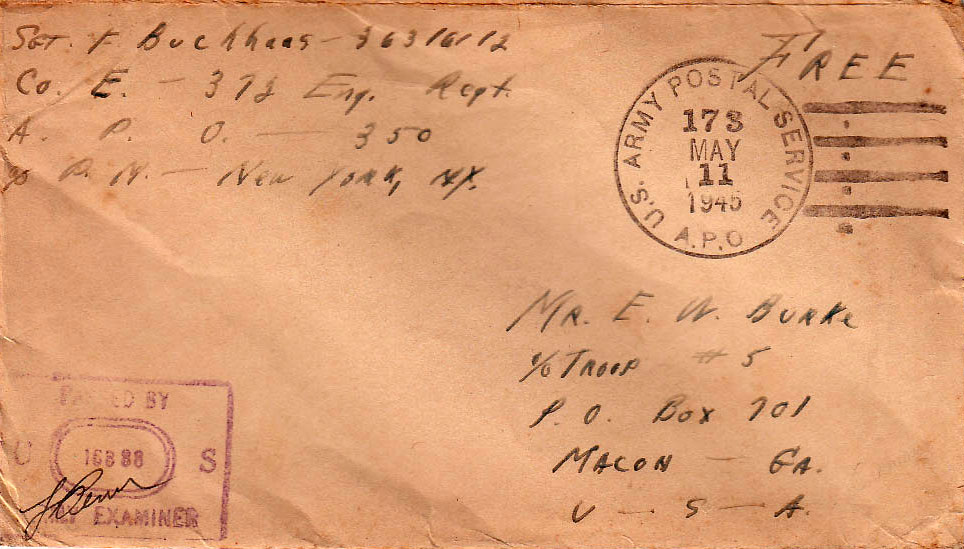 Sgt. F Buckhaas - 36316112
Co. E. - 372 Eng. Regt.
A. P. O. - 350
c/o P. M. - New York, N.Y.
FREE
U.S. ARMY POSTAL SERVICE
173
MAY
11
1945
A.P.O.
MR. E. W. BURKE
c/o TROOP #5
P. O. BOX 701
MACON - GA.
U - S - A.
PASSED BY
U S
EXAMINER